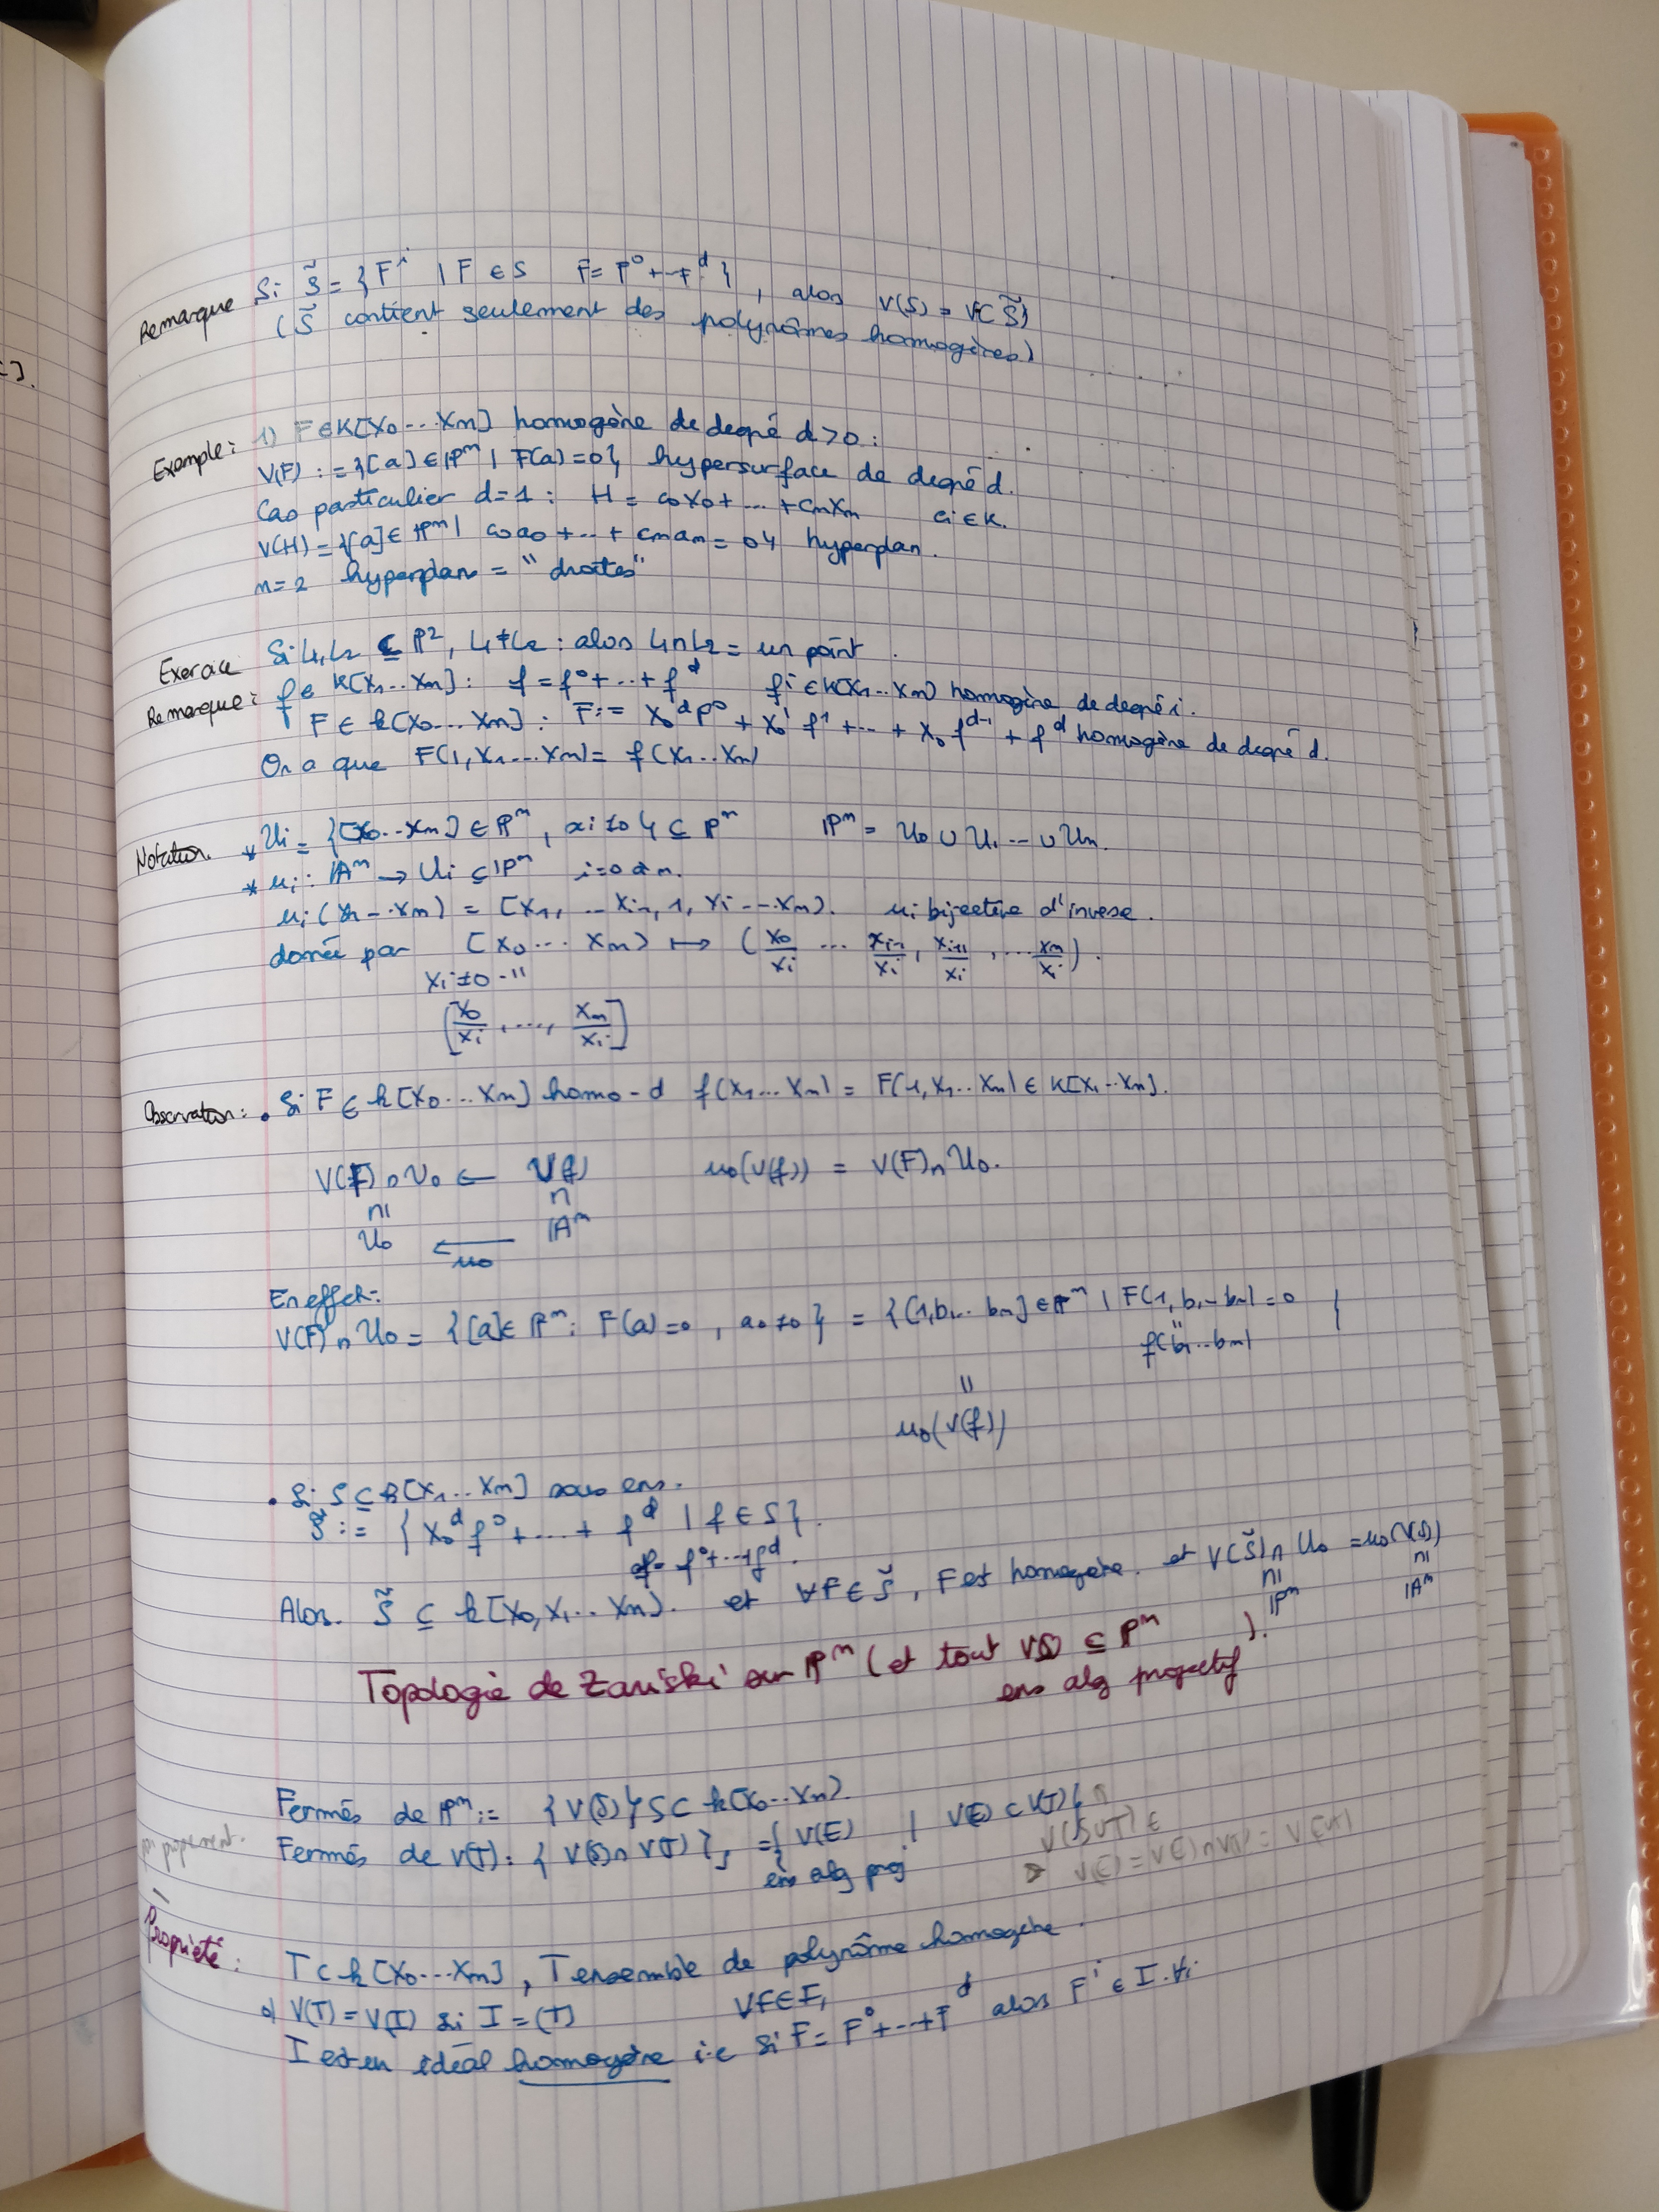 Remarque Si S̃ = { Fⁱ | F ∈ S F = F⁰+--+F^d } , alos V(S) = V(S̃)
(S̃ contient seulement des polynômes homogènes)
Exemple : 1) F∈K[X0 ... Xm] homogène de degré d>0 :
V(F) := {[a] ∈ ℙᵐ | F(a)=0}, hypersurface de degré d.
Cas particulier d=1 : H = c0X0+ ... +cmXm ci ∈ K.
V(H) = {[a] ∈ ℙᵐ | c0a0 + ... + cmam = 0} hyperplan.
n=2 hyperplan = "droites"
Exercice Si L1, L2 ⊆ ℙ², L1≠L2 : alos L1∩L2 = un point.
Remarque : f ∈ K[X1...Xm] : f = f⁰+...+f^d fi ∈ K[X1...Xm] homogène de degré i.
F ∈ k[X0...Xm] : F := X0^d f⁰ + X0¹ f¹ +...+ X0 f^{d-1} + f^d homogène de degré d.
On a que F(1, X1...Xm) = f(X1...Xm)
Notation. * Ui = {[X0...Xm] ∈ ℙᵐ, xi ≠ 0} ⊆ ℙᵐ ℙᵐ = U0 ∪ U1 ... ∪ Un.
* ui : 𝔸ᵐ → Ui ⊆ ℙᵐ i=0 à n.
ui (X1 ... Xm) = [X1, ... Xi-1, 1, Xi ... Xm]. ui bijective d'inverse.
donée par [X0 ... Xm] ↦ (X0/Xi ... Xi-1/Xi, Xi+1/Xi, ... Xm/Xi).
Xi≠0 - "
[X0/Xi, ..., Xm/Xi]
Observation : • Si F ∈ k[X0...Xm] homo-d f(X1...Xm) = F(1, X1...Xm) ∈ K[X1...Xm].
V(F)∩U0 ← V(f) u0(V(f)) = V(F)∩U0.
∩| ∩
U0 ← 𝔸ᵐ
u0
En effet :
V(F)∩U0 = {[a] ∈ ℙᵐ : F(a)=0, a0≠0} = {[1, b1...bm] ∈ ℙᵐ | F(1, b1...bm)=0 }
"
f(b1...bm)
"
u0(V(f))
• Si S ⊆ k[X1...Xm] sous ens.
S̃ := { X0^d f⁰+...+ f^d | f ∈ S}.
f= f⁰+...+f^d.
Alos. S̃ ⊆ k[X0, X1...Xn]. et ∀F∈S̃, F est homogène. et V(S̃)∩U0 = u0(V(S))
∩| ∩|
ℙᵐ 𝔸ᵐ
Topologie de Zariski sur ℙᵐ (et tout V(S) ⊆ ℙᵐ ).
ens alg projectif
Fermés de ℙᵐ := { V(S) } S⊂ k[X0...Xn].
Fermés de V(T) : { V(S)∩V(T) }, = { V(E) | V(E) ⊂ V(T) }
ens alg proj
V(S∪T) ∈
V(E) = V(E)∩V(T) = V(E∪T)
Propriété : T⊂k[X0...Xm], T ensemble de polynôme homogène.
a) V(T) = V(I) si I = (T) ∀F∈I,
I est un idéal homogène i.e si F = F⁰+...+F^d alos Fⁱ ∈ I ∀i